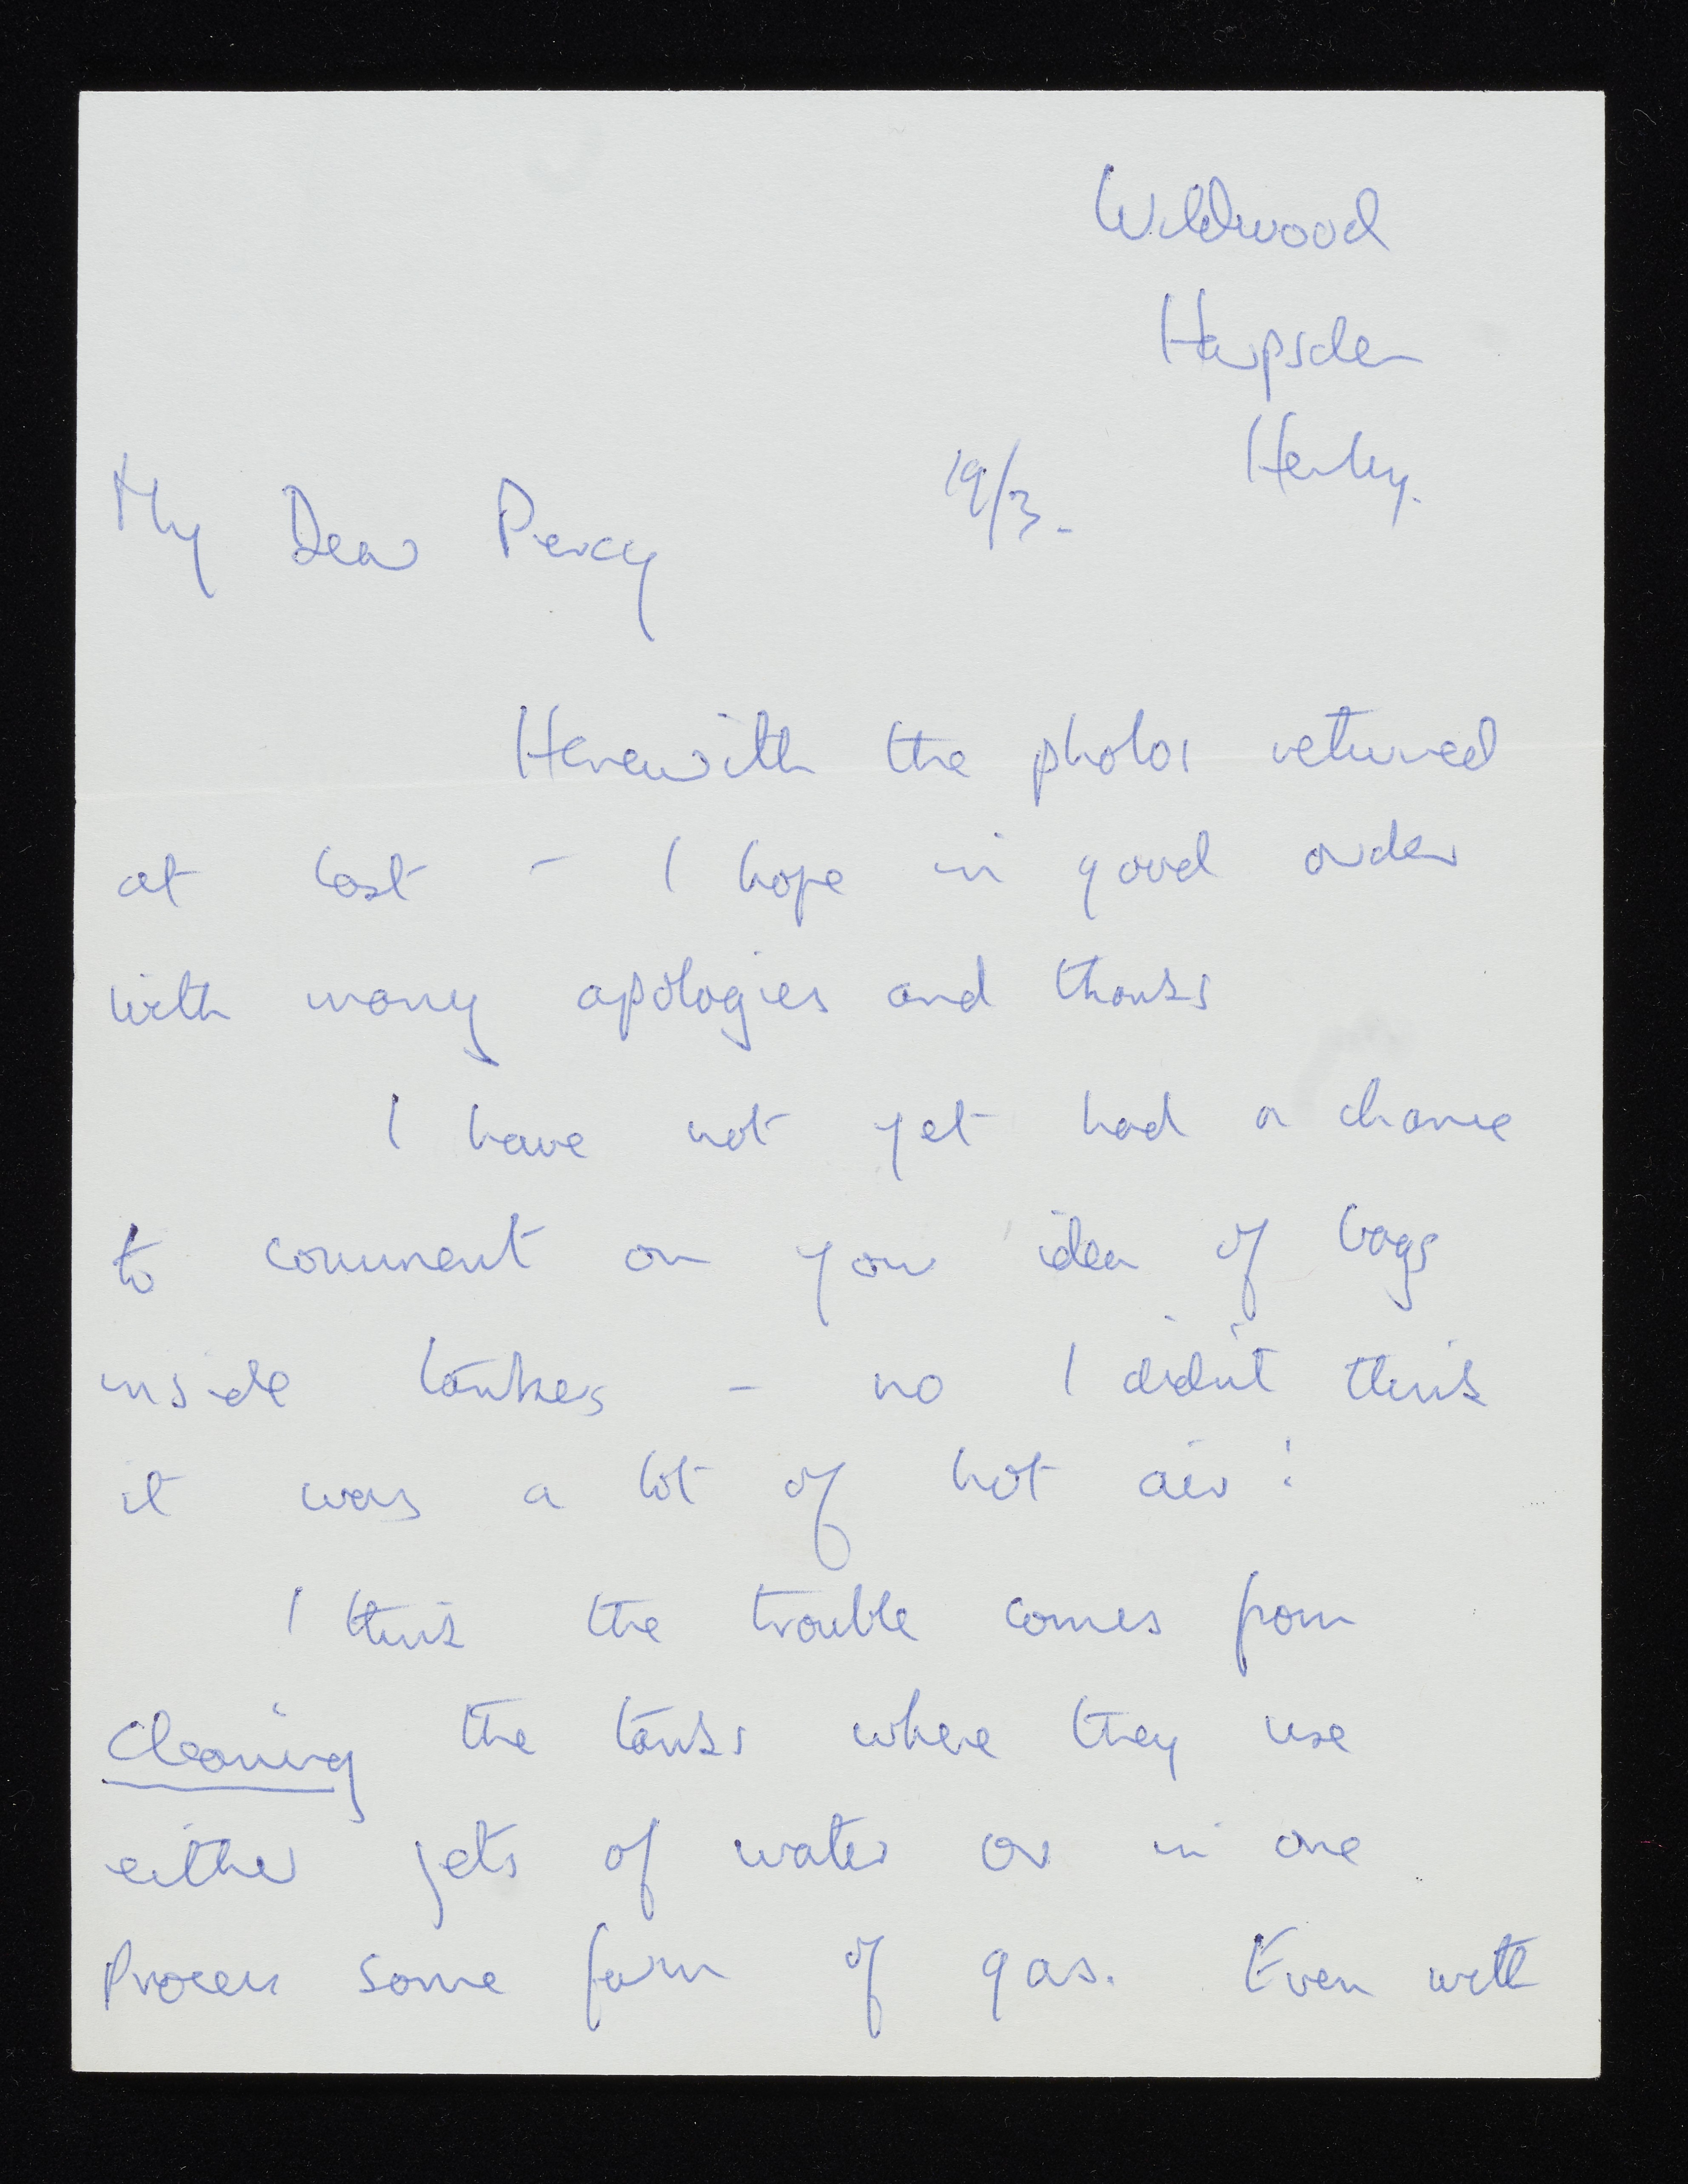 Wildwood
Harpsden
Henley.
19/3.
My Dear Percy
Herewith the photos returned
at last - I hope in good order
with many apologies and thanks
I have not yet had a chance
to comment on your idea of bags
inside tankers - no I didn't think
it was a lot of hot air!
I think the trouble comes from
Cleaning the tanks where they use
either jets of water or in one
process some form of gas. Even with